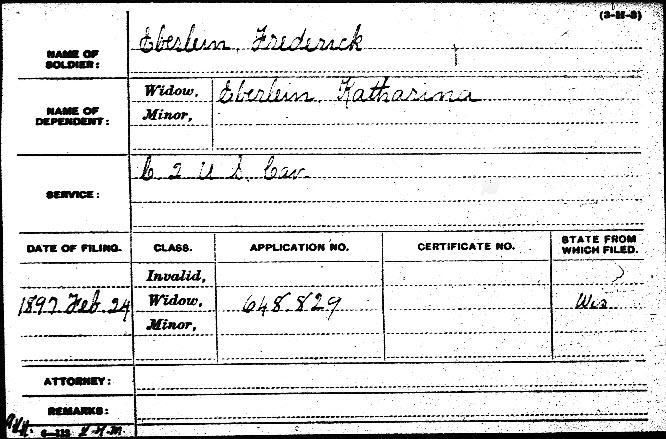 (3-M-8)
NAME OF SOLDIER: Eberlein, Frederick
NAME OF DEPENDENT: Widow, Eberlein, Katharina
Minor,
SERVICE: C 2 U S. Cav.
DATE OF FILING. CLASS. APPLICATION NO. CERTIFICATE NO. STATE FROM WHICH FILED.
Invalid,
1897 Feb. 24 Widow, 648.829 Wis
Minor,
ATTORNEY:
REMARKS: